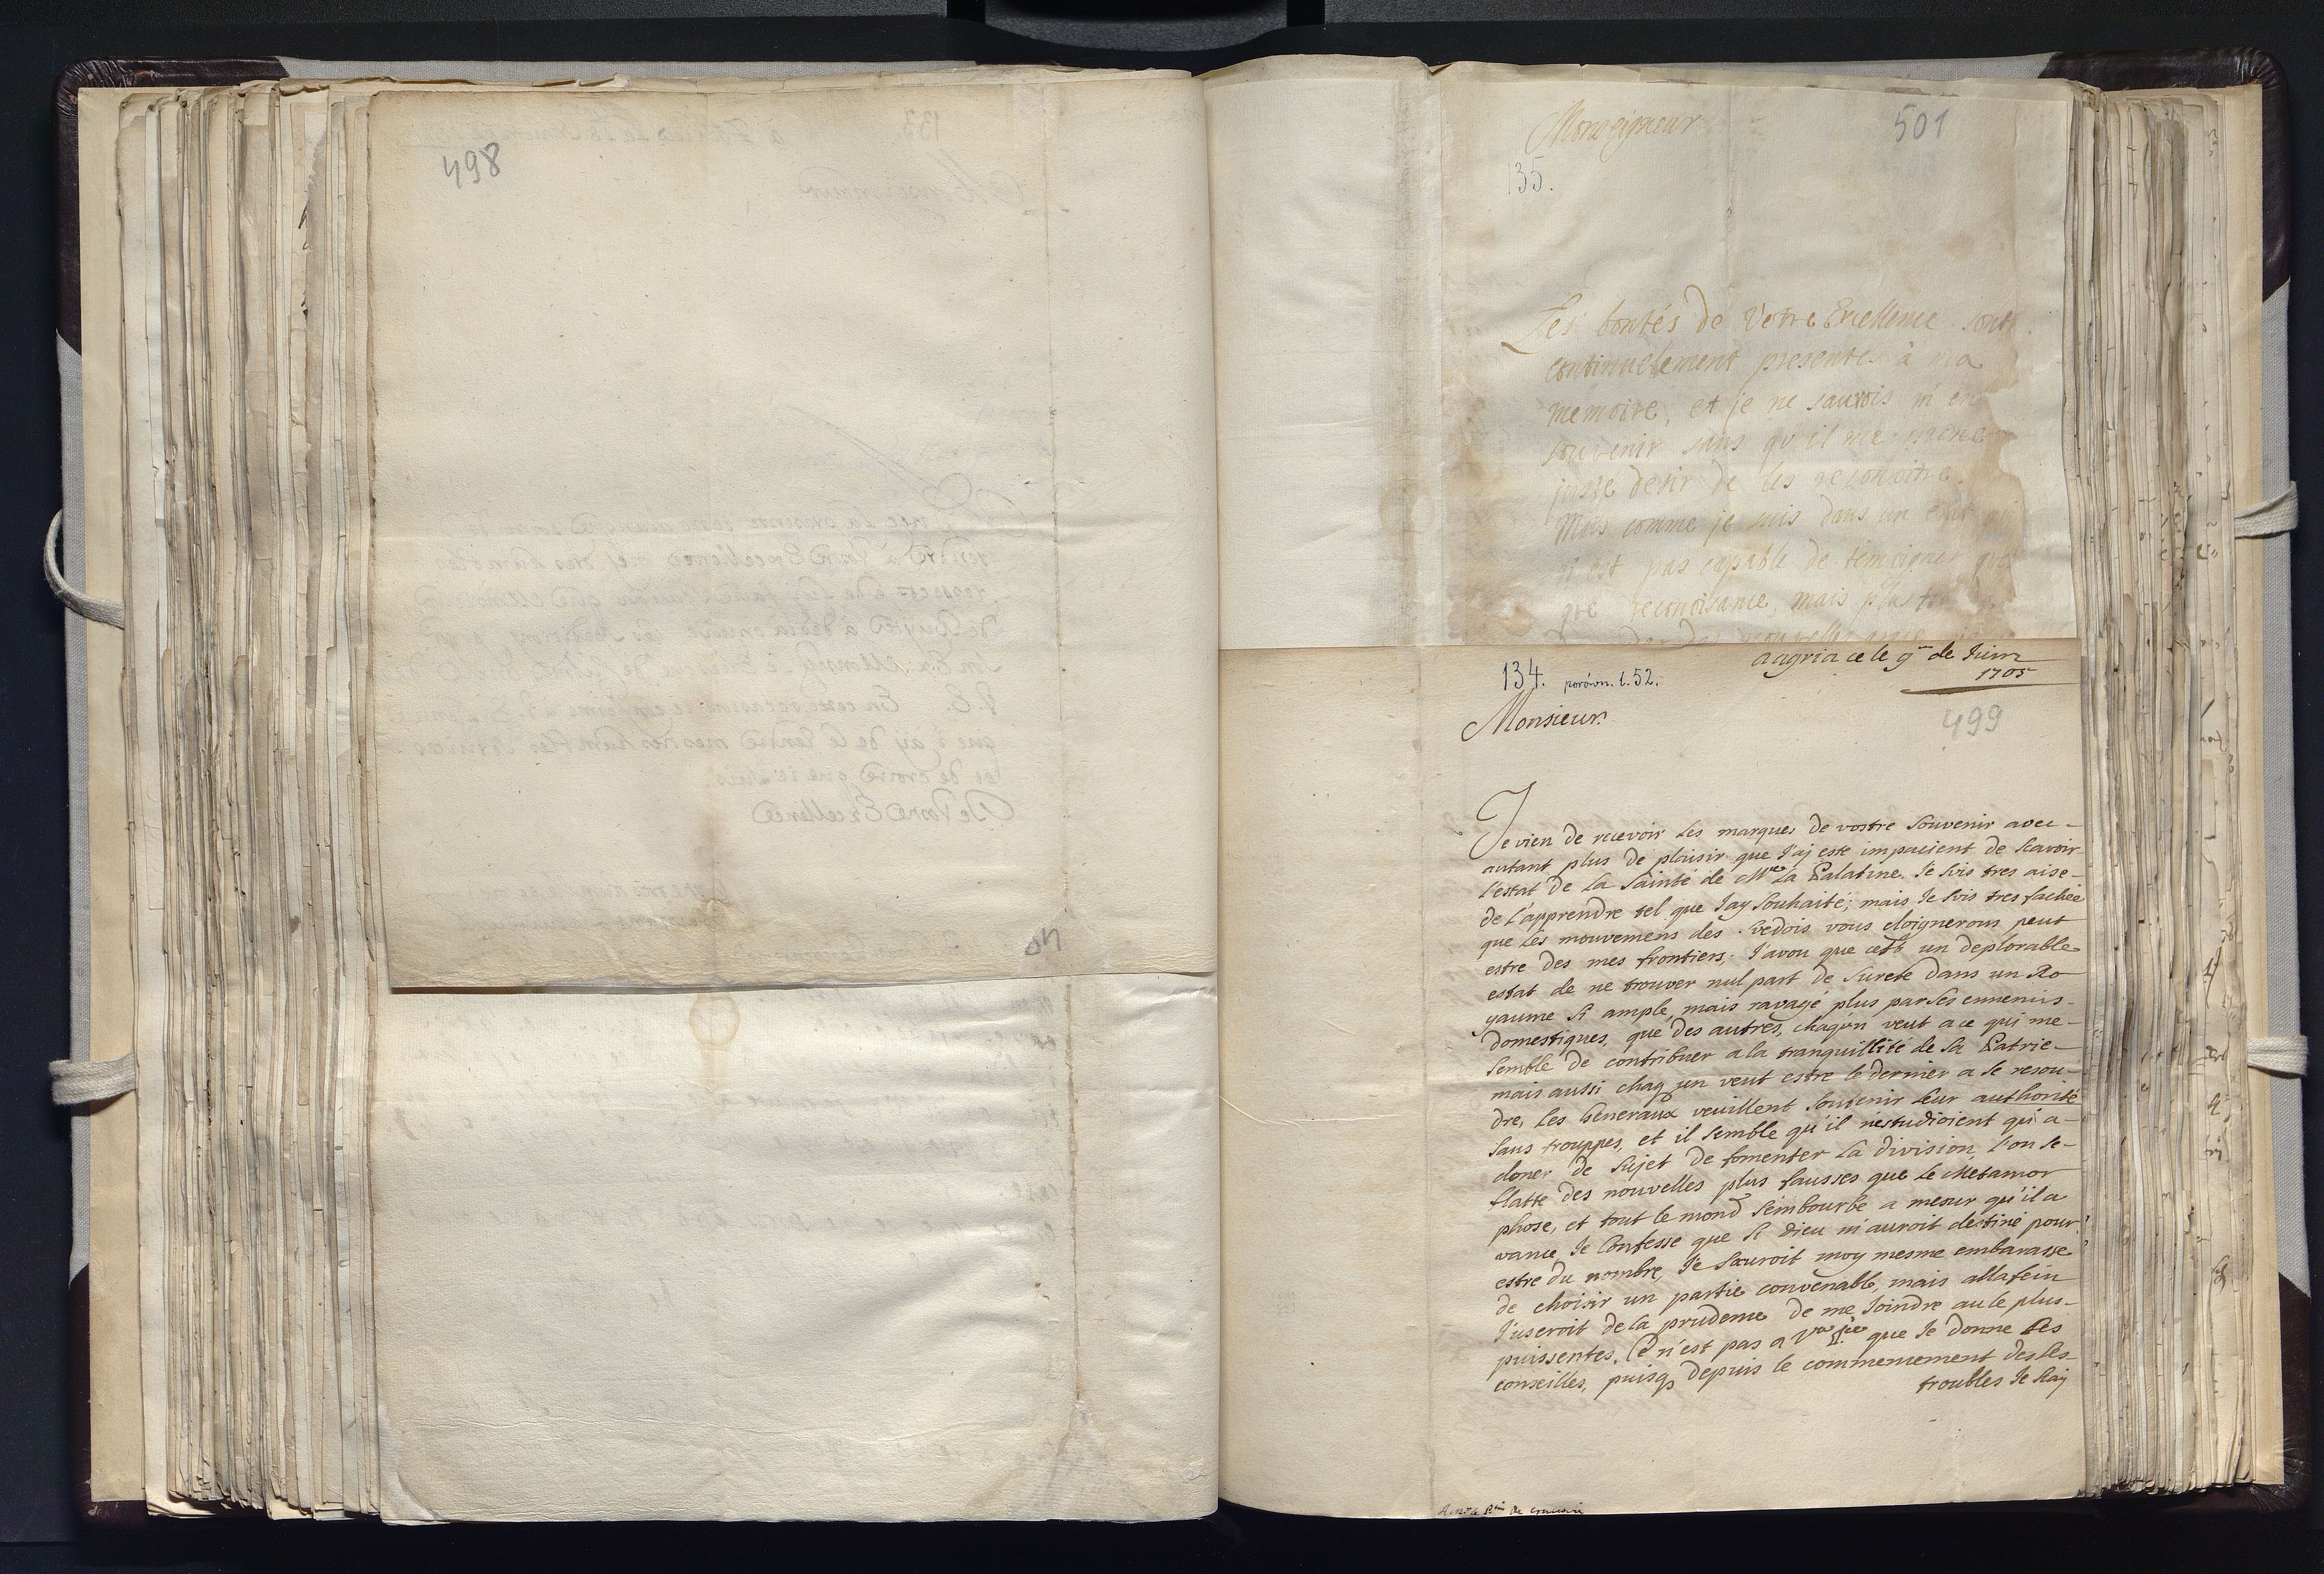 498
Monseigneur
501
135.
Les bontés de Vôtre Excellence sont
continuelement presentes à ma
memoire, et je ne saurois m'en
souvenir sans qu'il me
juste desir de les reconoitre.
Mais comme je suis dans un
n'est pas capable de temoigner
que reconoisance, mais plus
nouvelles
134. porówn. l. 52.
a agria ce le 9me de Juin
1705
499
Monsieur.
Je vien de recevoir les marques de vostre souvenir avec
autant plus de plaisir que J'aj esté impatient de scavoir
l'estat de la Sainté de Mme La Palatine. Je suis tres aise
de l'apprendre tel que Jay souhaité; mais Je suis tres fachée
que les mouvemens des Svedois vous eloignerons peut
estre des mes frontiers. J'avou que cest un deplorable
estat de ne trouver nul part de sureté dans un Ro
yaume si ample, mais ravagé plus par ses ennemis
domestiques, que des autres, chaqun veut a ce qui me
semble de contribuer a la tranquillité de sa Patrie
mais aussi chaq'un veut estre le dernier a se resou-
dre, les Generaux veuillent soutenir leur authorité
sans trouppes, et il semble qu'il n'estudioient qu'a
doner de sujet de fomenter la division, l'on se
flatte des nouvelles plus fausses que le Metamor
phose, et tout le mond s'embourbe a mesur qu'il a
vance, Je Confesse que si Dieu m'auroit destiné pour
estre du nombre, Je sauroit moy mesme embarasse
de choisir un partie convenable, mais allafein
J'useroit de la prudence de me Joindre au le plus
puissentes, Ce n'est pas a que Je donne les
conseilles, puisq depuis le commencement des ses
troubles Je scaj